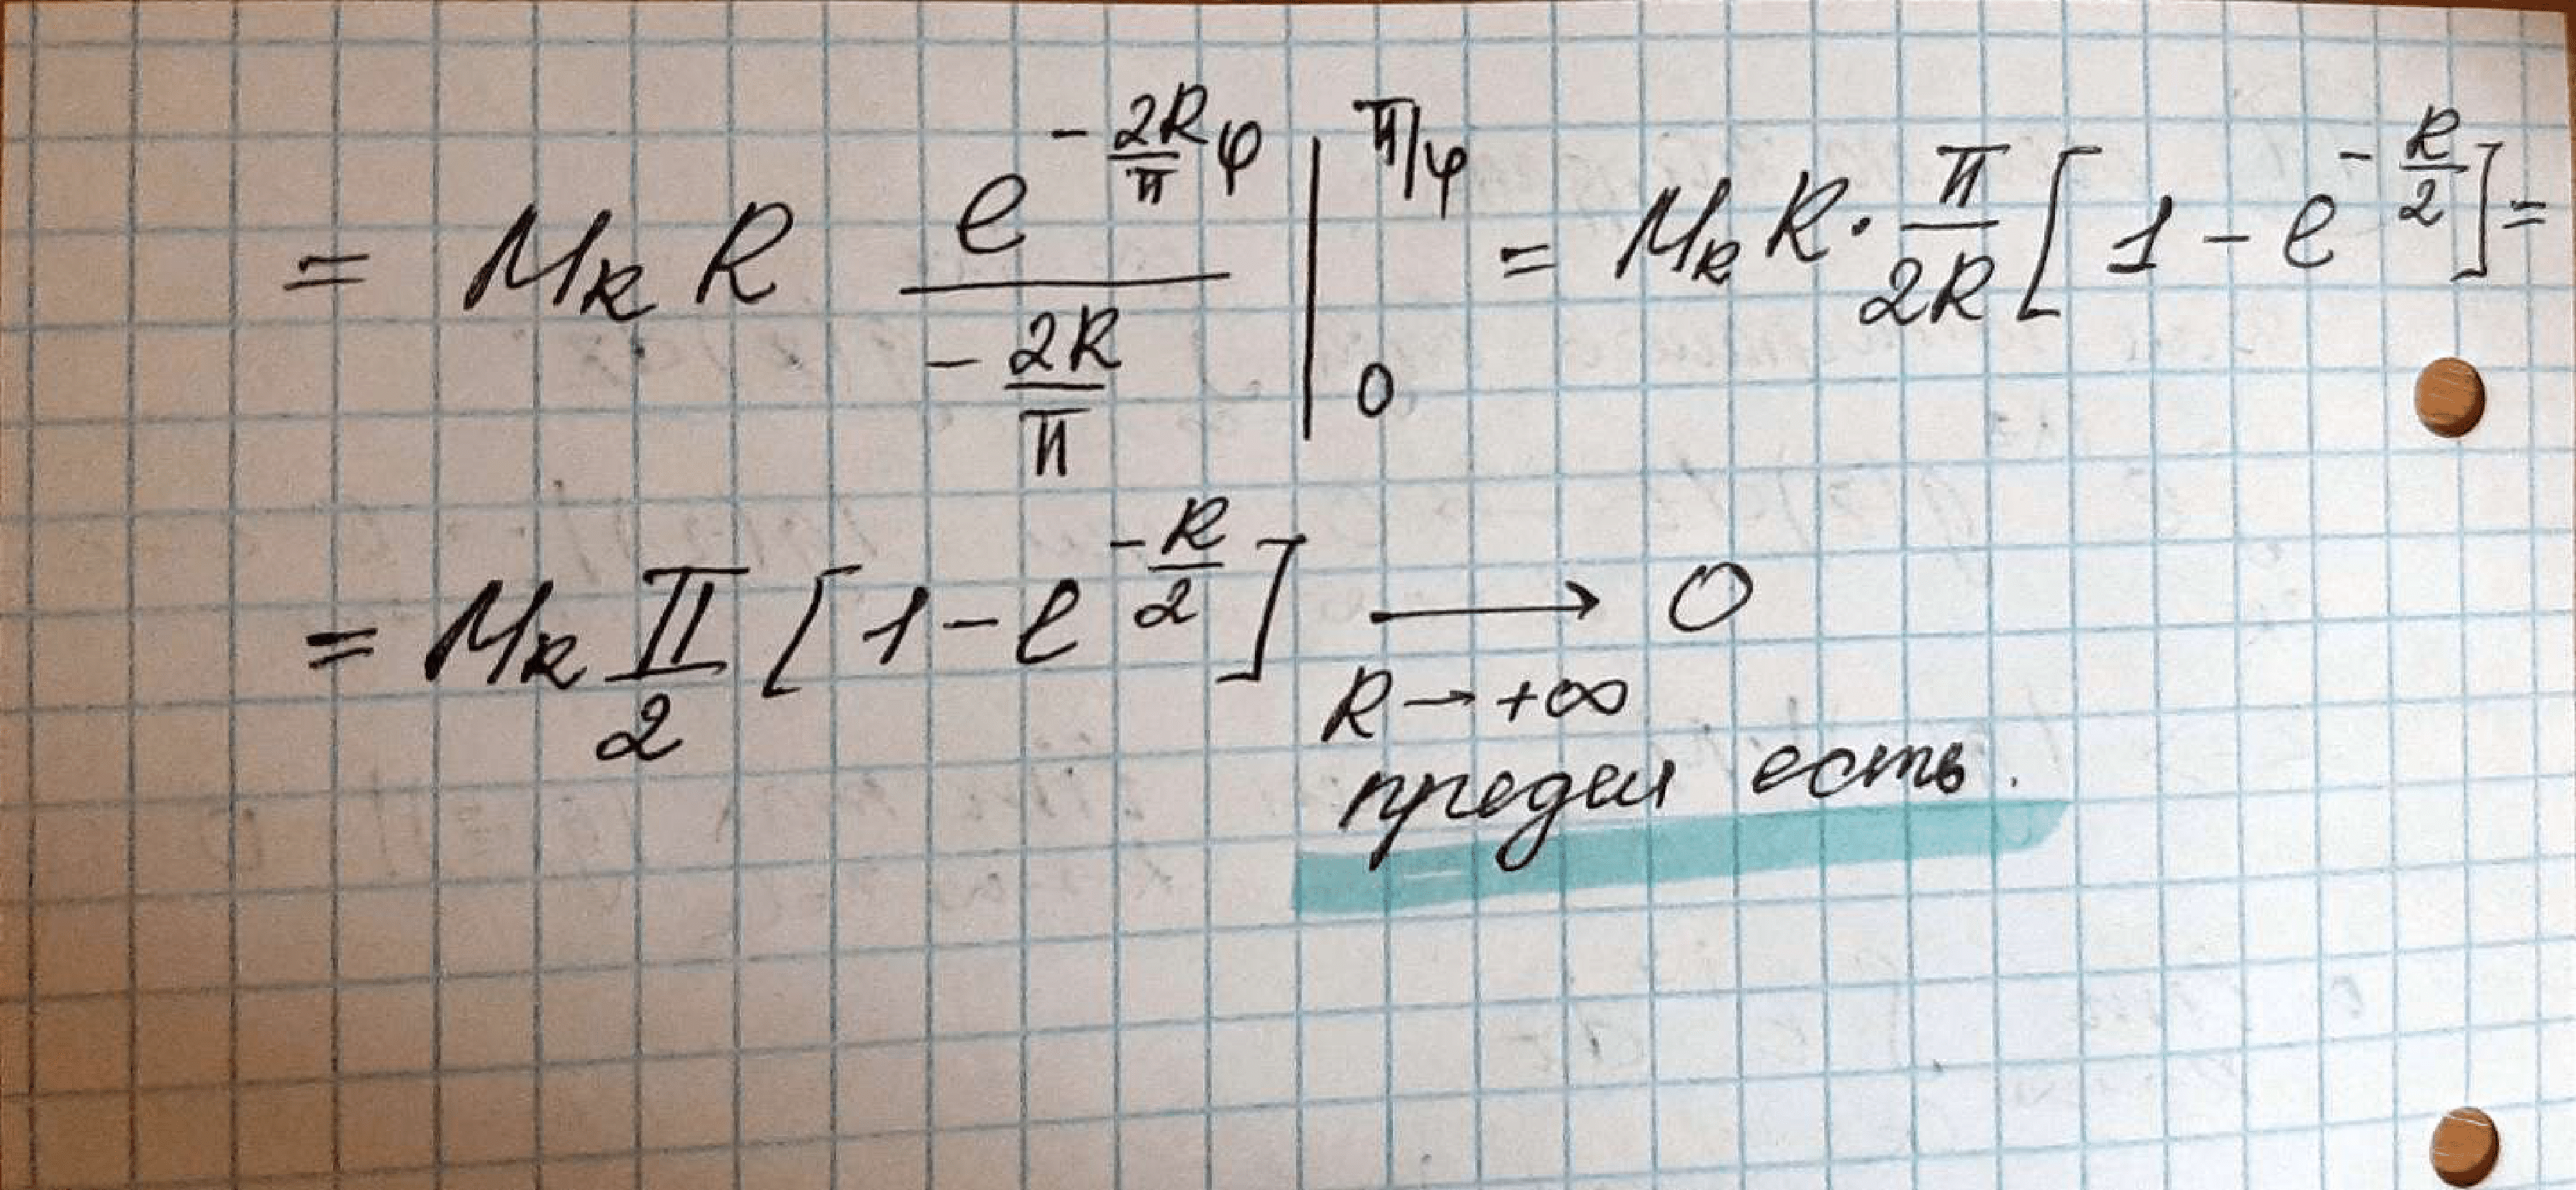 = M_R R \frac{e^{-\frac{2R}{π}φ}}{-\frac{2R}{π}} |_0^{π/φ} = M_R R · \frac{π}{2R} [1 - e^{-\frac{R}{2}}] =
= M_R \frac{π}{2} [1 - e^{-\frac{R}{2}}] ⟶ 0
R → +∞
предел есть.